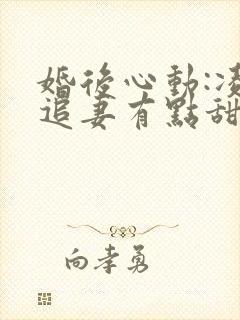 婚後心動:凌
追妻有點甜
向孝勇